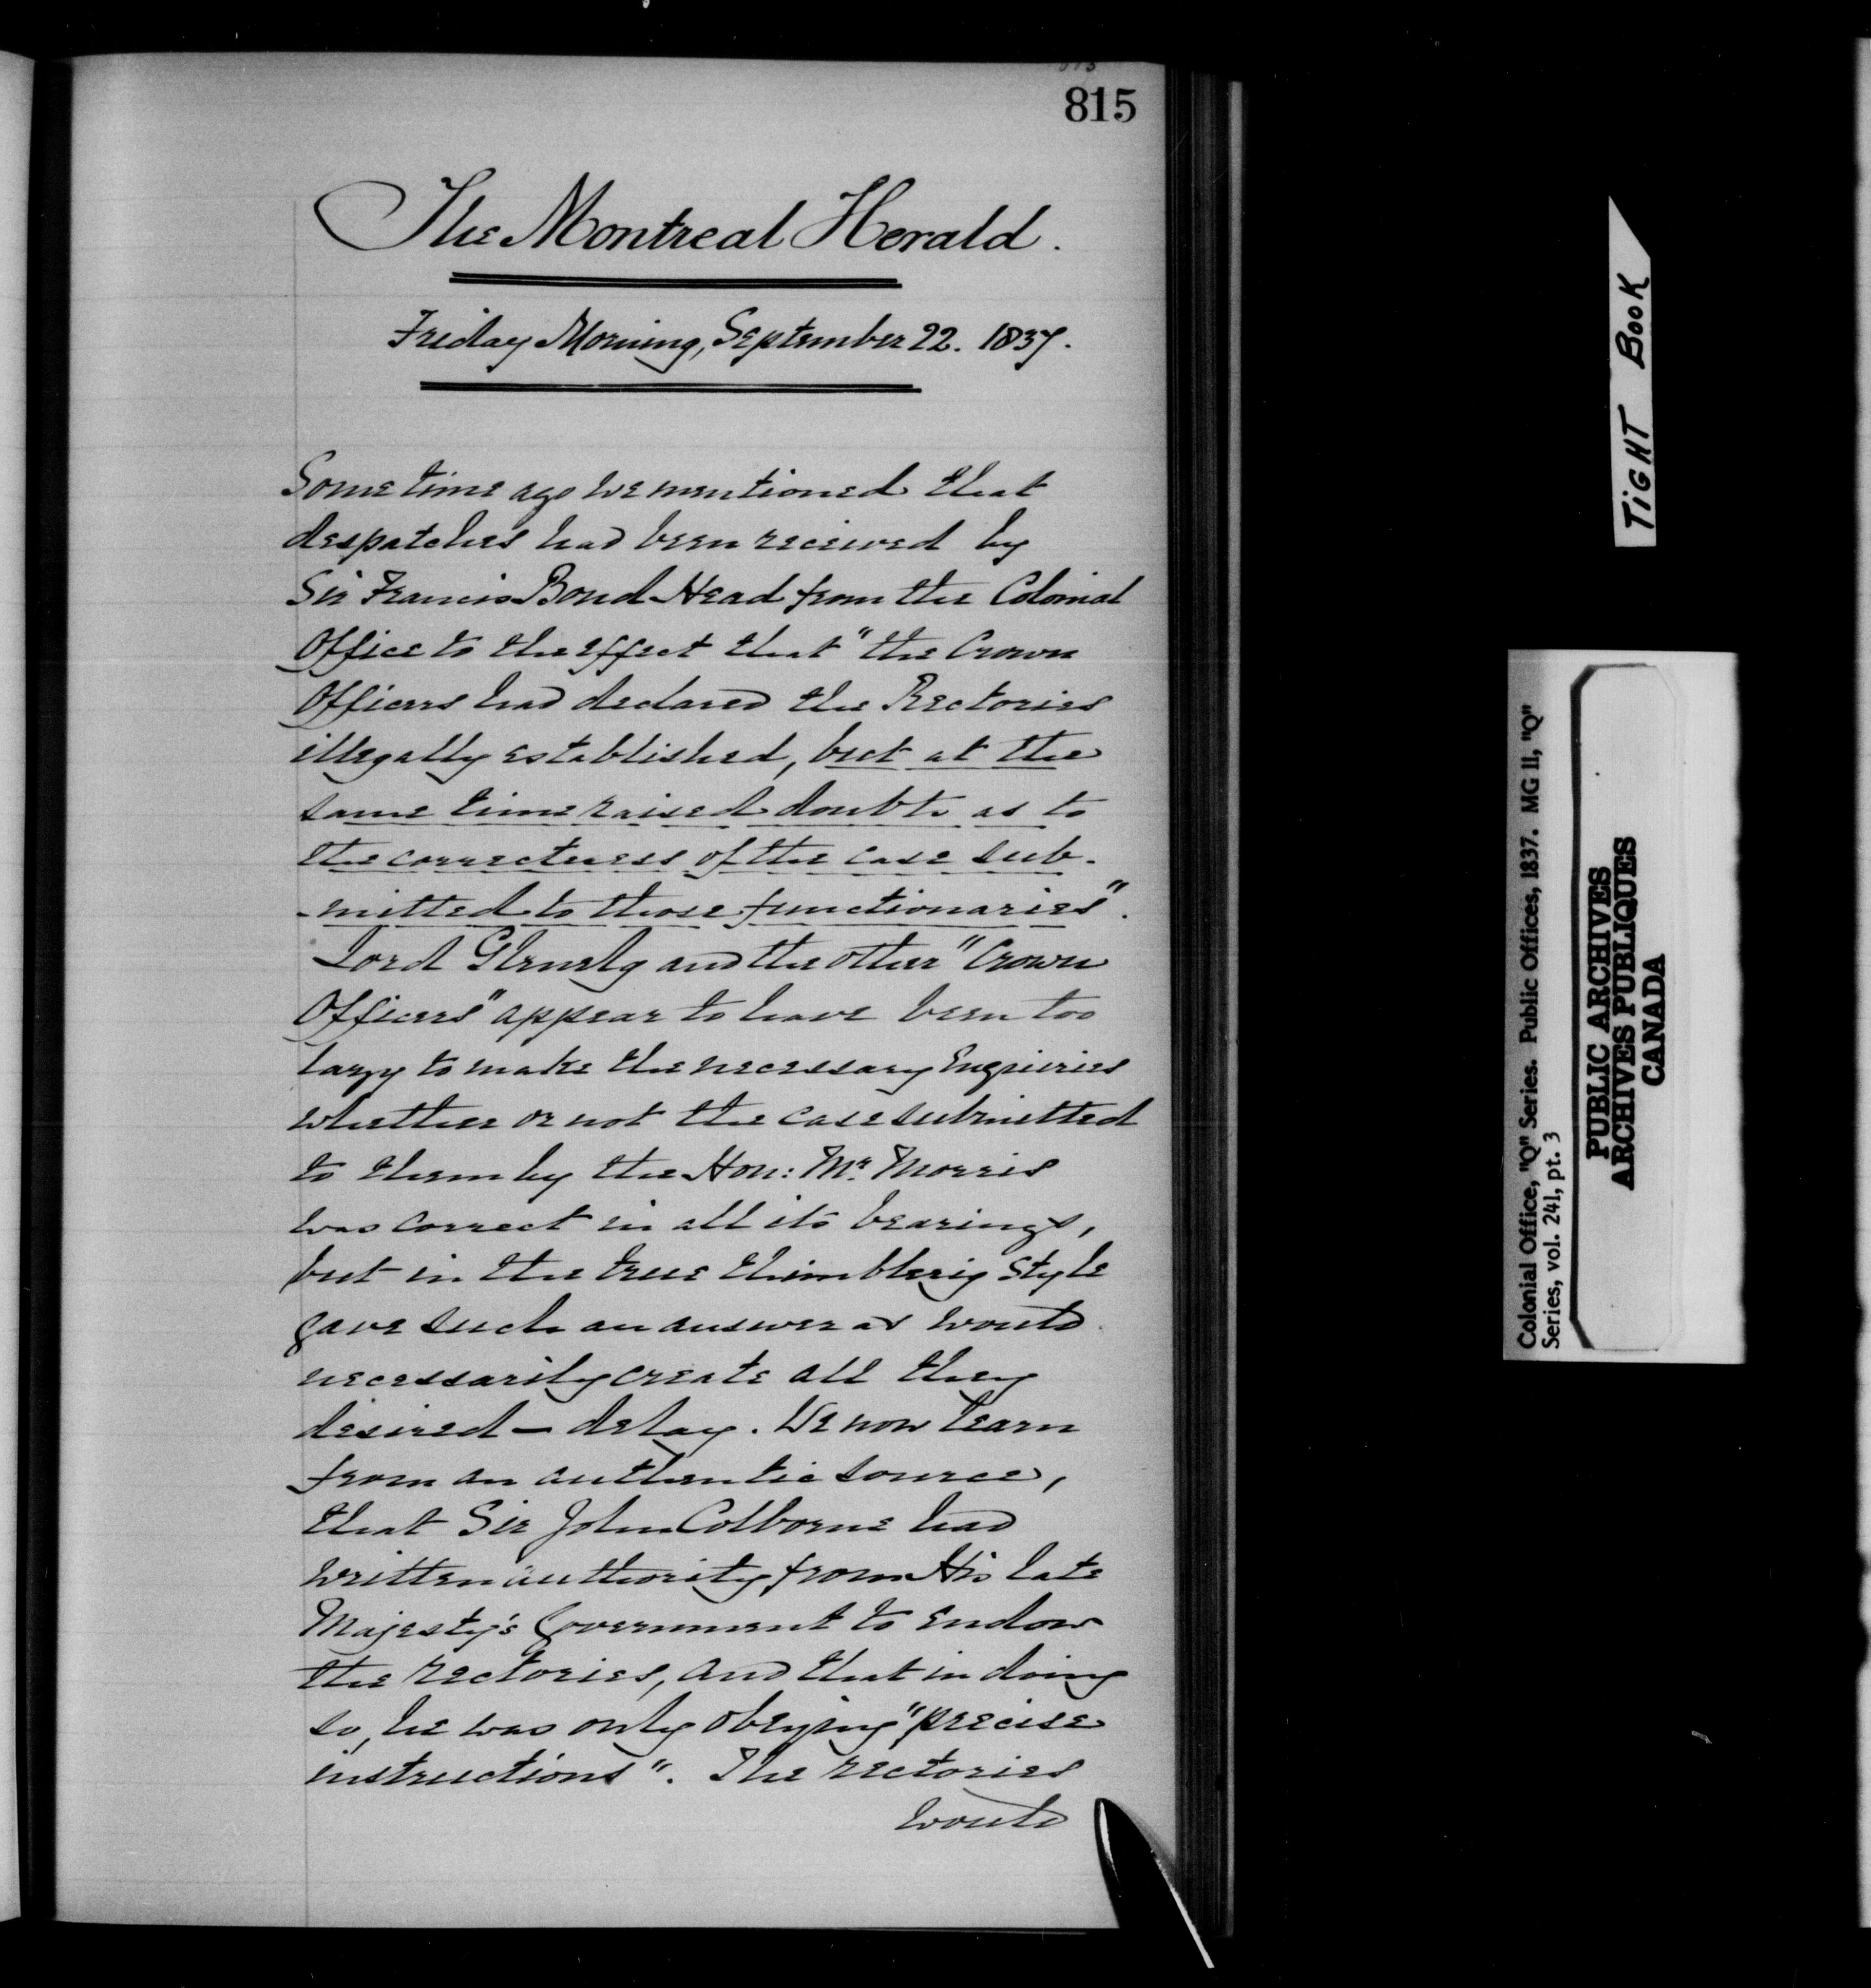 815
The Montreal Herald.
Friday Morning, September 22. 1837.
Some time ago we mentioned that
despatches had been received by
Sir Francis Bond Head from the Colonial
Office to the effect that "the Crown
Officers had declared the Rectories
illegally established, but at the
same time raised doubts as to
the correctness of the case sub-
-mitted to those functionaries".
Lord Glenelg and the other "Crown
Officers" appear to have been too
lazy to make the necessary Enquiries
whether or not the case submitted
to them by the Hon: Mr. Morris
was correct in all its bearings,
but in the true thimblerig style
gave such an answer as would
necessarily create all they
desired — delay. We now learn
from an authentic source,
that Sir John Colborne had
written authority from His late
Majesty's Government to Endow
the rectories, and that in doing
so, he was only obeying "precise
instructions". The rectories
would
TIGHT BOOK
Colonial Office, "Q" Series. Public Offices, 1837. MG 11, "Q"
Series, vol. 241, pt. 3
PUBLIC ARCHIVES
ARCHIVES PUBLIQUES
CANADA